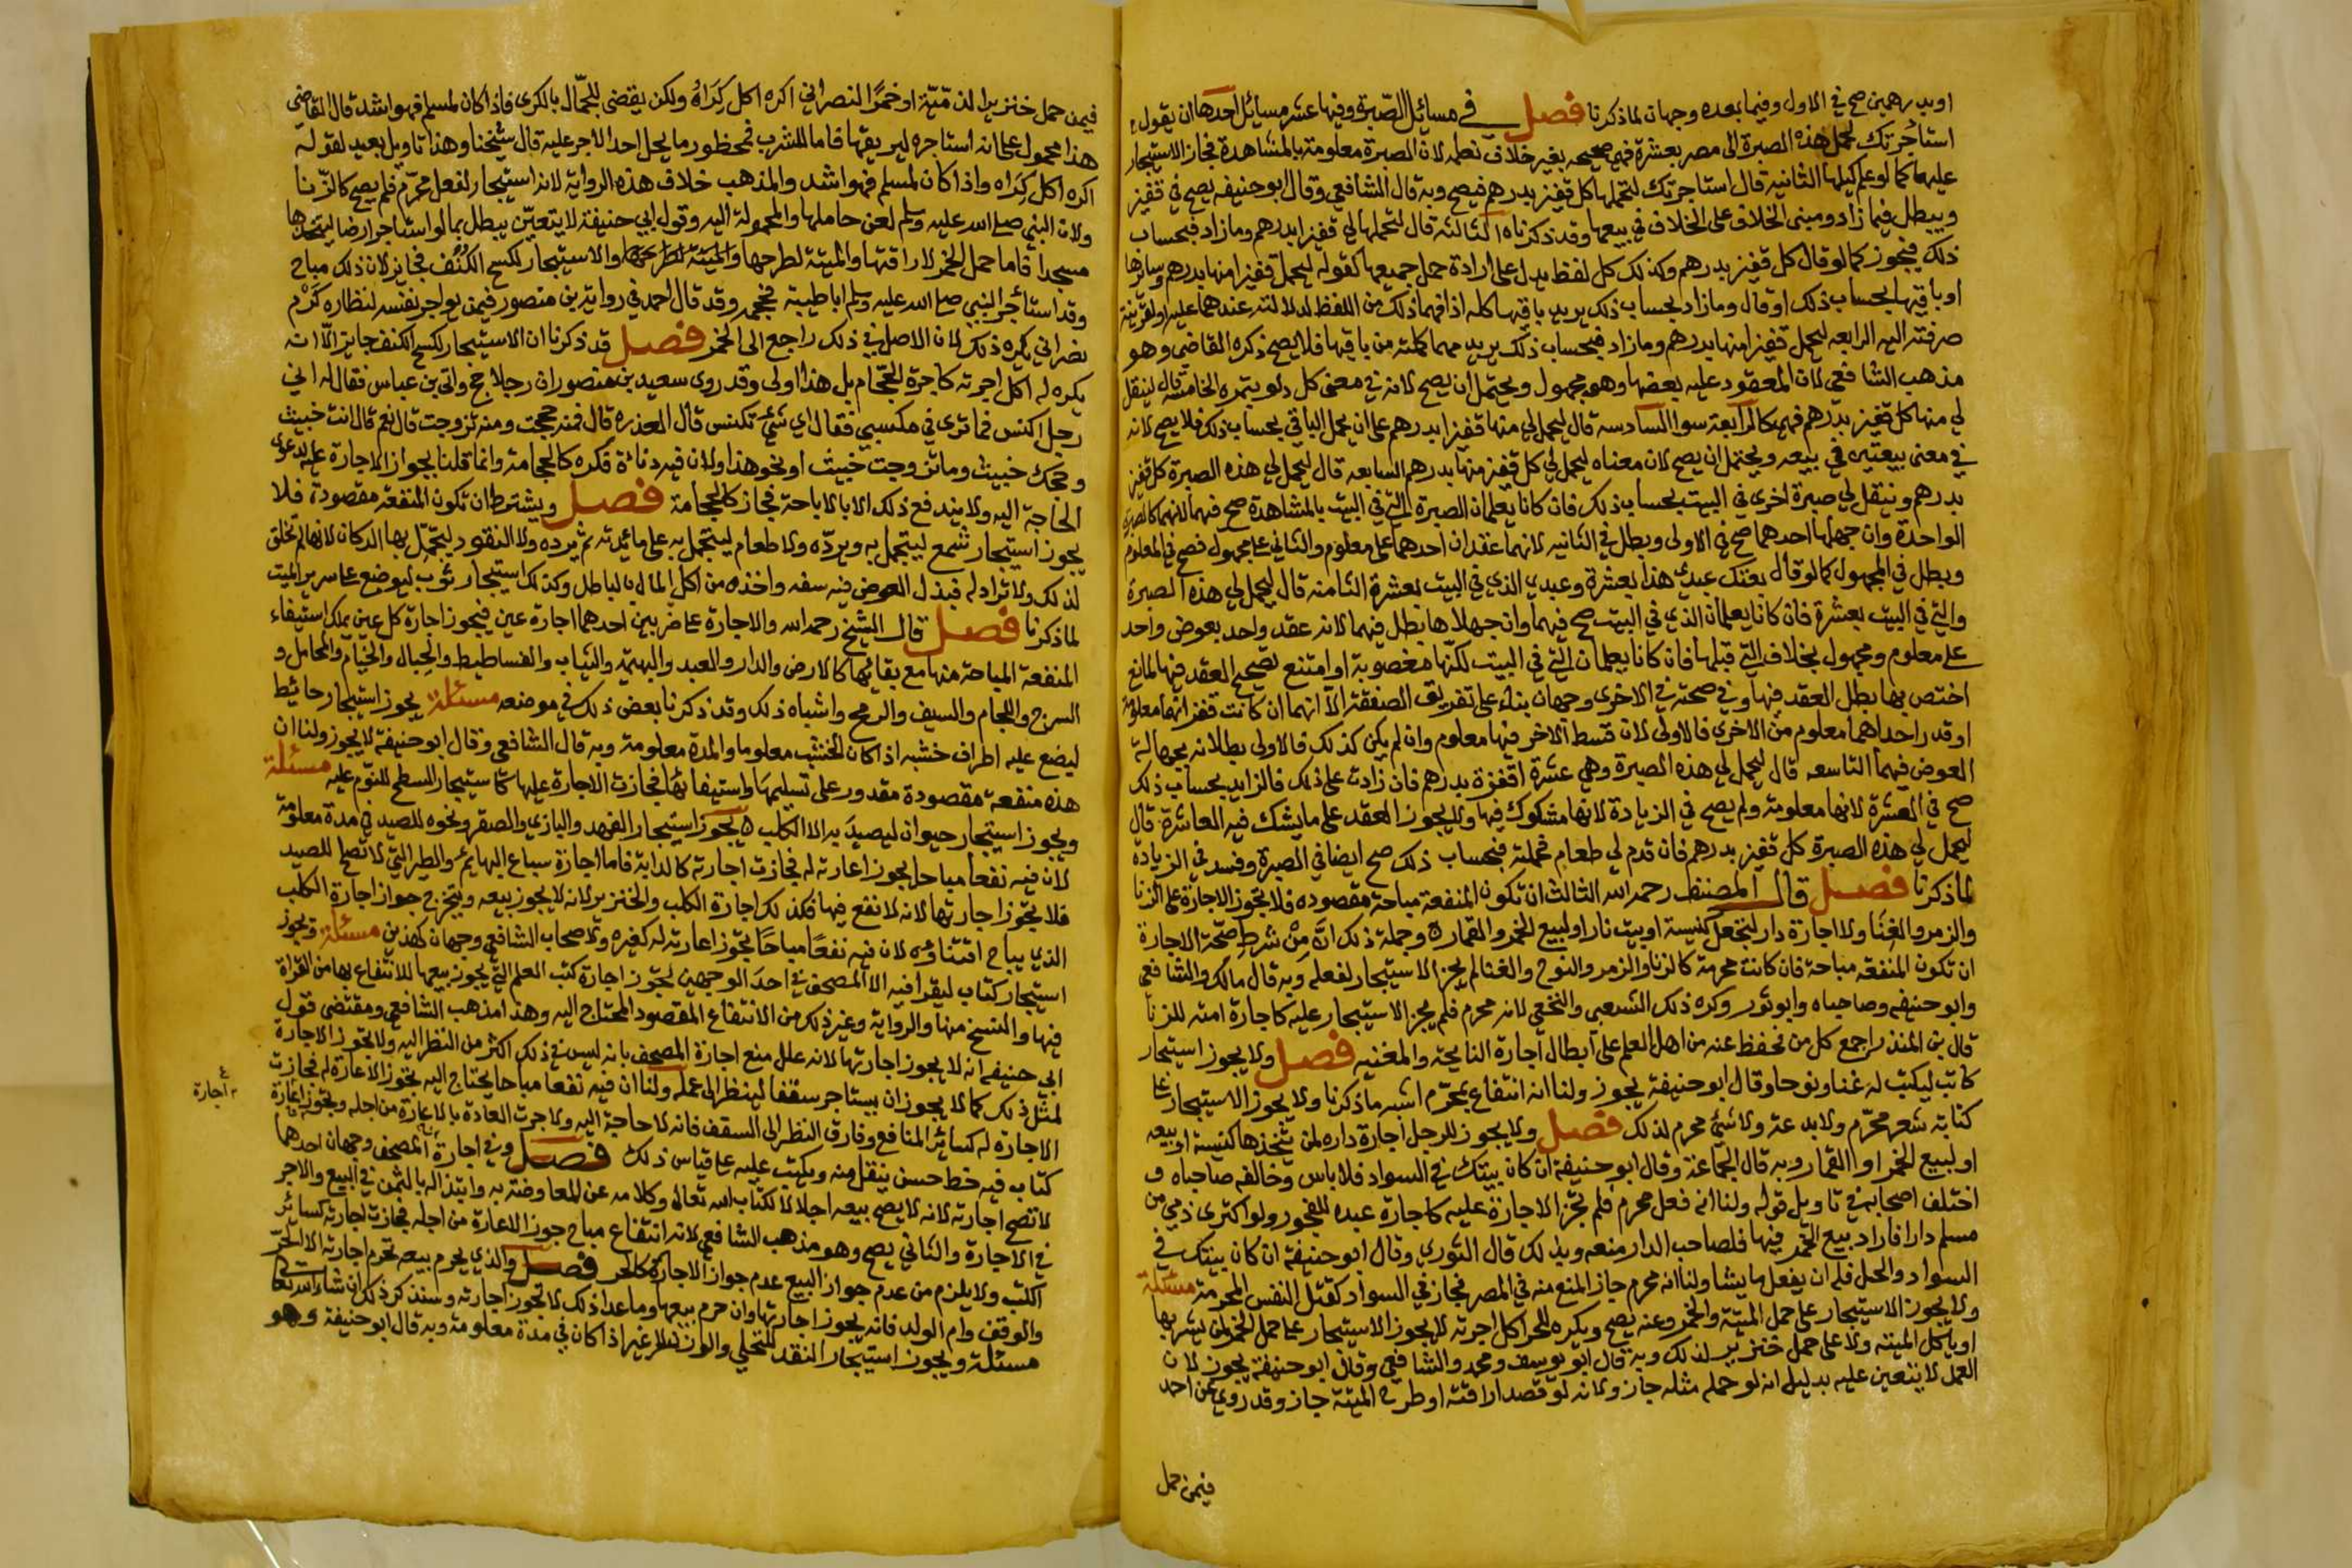 او بدرهمين صح في الاول وفيما بعده وجهان لما ذكرنا فصل في مسائل الصبرة وفيها عشر مسائل احدها ان يقول
استأجرتك لحمل هذه الصبرة الى مصر بعشرة فهي صحيحه بغير خلاف نعلمه لان الصبرة معلومة بالمشاهدة فجاز الاستيجار
عليها كما لو علم كيلها الثانيه قال استاجرتك لتحملها كل قفيز بدرهم فيصح وبه قال الشافعي وقال ابو حنيفه يصح في قفيز
ويبطل فيما زاد ومبنى الخلاف على الخلاف في بيعها وقد ذكرناه الثالثه قال لتحملها لي قفيزا بدرهم وما زاد فبحساب
ذلك فيجوز كما لو قال كل قفيز بدرهم وكذلك كل لفظ يدل على ارادة حمل جميعها كقوله لتحمل قفيزا منها بدرهم وسائرها
او باقيها بحساب ذلك او قال وما زاد بحساب ذلك يريد باقيها كله اذا فهما ذلك من اللفظ لدلالته عندهما عليه او لقرينة
صرفته اليه الرابعه لتحمل قفيزا منها بدرهم وما زاد فبحساب ذلك يريد مهما حملته من باقيها فلا يصح ذكره القاضي وهو
مذهب الشافعي لان المعقود عليه بعضها وهو مجهول ويحتمل ان يصح لانه في معنى كل دلو بتمره الخامسة قال لينقل
لي منها كل قفيز بدرهم فهي كالرابعة سوا السادسه قال لتحمل لي منها قفيزا بدرهم على ان يحمل الباقي بحساب ذلك فلا يصح لانه
في معنى بيعتين في بيعه ويحتمل ان يصح لان معناه لتحمل لي كل قفيز منها بدرهم السابعه قال لتحمل لي هذه الصبرة كل قفيز
بدرهم وتنقل لي صبرة اخرى في البيت بحساب ذلك فان كانا يعلمان الصبرة التي في البيت بالمشاهدة صح فيهما لانهما كالصبرة
الواحدة وان جهلها احدهما صح في الاولى وبطل في الثانيه لانهما عقدان احدهما على معلوم والثاني على مجهول فصح في المعلوم
وبطل في المجهول كما لو قال بعتك عبدي هذا بعشرة وعبدي الذي في البيت بعشرة الثامنه قال لتحمل لي هذه الصبرة
والتي في البيت بعشرة فان كانا يعلمان الذي في البيت صح فيهما وان جهلاها بطل فيهما لانه عقد واحد بعوض واحد
على معلوم ومجهول بخلاف التي قبلها فان كانا يعلمان التي في البيت لكنها مغصوبة او امتنع تصحيح العقد فيها لمانع
اختص بها بطل العقد فيها وفي صحته في الاخرى وجهان بناء على تفريق الصفقة الا انهما ان كانت قفزانهما معلومة
او قدر احداهما معلوم من الاخرى فالاولى لان قسط الاخر فيها معلوم وان لم يكن كذلك فالاولى بطلانه لجهالة
العوض فيهما التاسعه قال لتحمل لي هذه الصبرة وهي عشرة اقفزة بدرهم فان زادت على ذلك فالزايد بحساب ذلك
صح في العشرة لانها معلومة ولم يصح في الزيادة لانها مشكوك فيها ولا يجوز العقد على ما يشك فيه العاشرة قال
لتحمل لي هذه الصبرة كل قفيز بدرهم فان قدم لي طعام فحملته فبحساب ذلك صح ايضا في الصبرة وفسد في الزيادة
لما ذكرنا فصل قال المصنف رحمه الله الثالث ان تكون المنفعة مباحة مقصوده فلا تجوز الاجارة على الزنا
والزمر والغنا ولا اجارة دار لتجعل كنيسة او بيت نار او لبيع الخمر والقمار ه وجملة ذلك ان من شرط صحة الاجارة
ان تكون المنفعه مباحة فان كانت محرمة كالزنا والزمر والنوح والغنا لم يجز الاستيجار لفعله وبه قال مالك والشافعي
وابو حنيفه وصاحباه وابو ثور وكره ذلك الشعبي والنخعي لانه محرم فلم يجز الاستيجار عليه كاجارة امته للزنا
قال بن المنذر اجمع كل من نحفظ عنه من اهل العلم على ابطال اجارة النايحة والمغنيه فصل ولا يجوز استيجار
كاتب ليكتب له غنا ونوحا وقال ابو حنيفة يجوز ولنا انه انتفاع بمحرم اشبه ما ذكرنا ولا يجوز الاستيجار على
كتابة شعر محرم ولا بدعة ولا شئ محرم لذلك فصل ولا يجوز للرجل اجارة داره لمن يتخذها كنيسة او بيعه
او لبيع الخمر او القمار وبه قال الجماعة وقال ابو حنيفة ان كان بيتك في السواد فلا باس وخالفه صاحباه و
اختلف اصحابه في تاويل قوله ولنا انه فعل محرم فلم تجز الاجارة عليه كاجارة عبده للفجور ولو اكترى ذمي من
مسلم دارا فاراد بيع الخمر فيها فلصاحب الدار منعه وبذلك قال الثوري وقال ابو حنيفة ان كان بيتك في
السواد والجبل فله ان يفعل ما يشا ولنا انه محرم جاز المنع منه في المصر فجاز في السواد كقتل النفس المحرمة مسئلة
ولا يجوز الاستيجار على حمل الميتة والخمر وعنه يصح ويكره للحر اكل اجرته لا يجوز الاستيجار على حمل الخمر لمن يشربها
او ياكل الميته ولا على حمل خنزير لذلك وبه قال ابو يوسف ومحمد والشافعي وقال ابو حنيفة يجوز لان
العمل لا يتعين عليه بدليل انه لو حمله مثله جاز ولانه لو قصد اراقته او طرح الميتة جاز وقد روي عن احمد
فيمن حمل
فيمن حمل خنزيرا لذمي او ميتة او خمرا لنصراني اكره اكل كراه ولكن يقضى للحمال بالكرى فاذا كان لمسلم فهو اشد قال القاضي
هذا محمول على انه استاجره ليريقها فاما للشرب فمحظور ما يحل احد الاجر عليه قال شيخنا وهذا تاويل بعيد لقوله
اكره اكل كراه واذا كان لمسلم فهو اشد والمذهب خلاف هذه الرواية لانه استيجار لفعل محرم فلم يصح كالزنا
ولان النبي صلى الله عليه وسلم لعن حاملها والمحمولة اليه وقول ابي حنيفة لا يتعين يبطل بما لو استاجر ارضا ليتخذها
مسجدا فاما حمل الخمر لاراقتها والميتة لطرحها والاستيجار لكسح الكنف فجايز لان ذلك مباح
وقد استأجر النبي صلى الله عليه وسلم ابا طيبة فحجمه وقد قال احمد في رواية بن منصور فيمن يواجر نفسه لنظاره كرم
نصراني يكره ذلك لان الاصل في ذلك راجع الى الخمر فصل قد ذكرنا ان الاستيجار لكسح الكنف جايز الا انه
يكره له اكل اجرته كاجرة الحجام بل هذا اولى وقد روى سعيد بن منصور ان رجلا حج واتى بن عباس فقال له اني
رجل اكنس فما ترى في مكسبي فقال اي شئ تكنس قال العذره قال فمنه حججت ومنه تزوجت قال نعم قال انت خبيث
وحجك خبيث وما تزوجت خبيث او نحو هذا ولان فيه دناءة فكره كالحجامة وانما قلنا بجواز الاجارة عليه لدعوى
الحاجة اليه ولا يندفع ذلك الا بالاباحة فجاز كالحجامة فصل ويشترط ان تكون المنفعة مقصودة فلا
يجوز استيجار شمع ليتجمل به ويرده ولا طعام ليتجمل به على مائدته ثم يرده ولا النقود ليتجمل بها الدكان لانها لم تخلق
لذلك ولا تراد له فبذل العوض فيه سفه واخذه من اكل المال بالباطل وكذلك استيجار ثوب ليوضع على سرير الميت
لما ذكرنا فصل قال الشيخ رحمه الله والاجارة على ضربين احدهما اجارة عين فيجوز اجارة كل عين يملك استيفاء
المنفعة المباحة منها مع بقائها كالارض والدار والعبد والبهيمة والثياب والفساطيط والحبال والخيام والمحامل و
السرج واللجام والسيف والرمح واشباه ذلك وقد ذكرنا بعض ذلك في موضعه مسئلة يجوز استيجار حائط
ليضع عليه اطراف خشبه اذا كان الخشب معلوما والمدة معلومة وبه قال الشافعي وقال ابو حنيفة لا يجوز ولنا ان
هذه منفعة مقصودة مقدور على تسليمها واستيفائها فجازت الاجارة عليها كاستيجار السطح للنوم عليه مسئلة
ويجوز استيجار حيوان ليصيد به الا الكلب ه يجوز استيجار الفهد والبازي والصقر ونحوه للصيد في مدة معلومة
لان فيه نفعا مباحا يجوز اعارته له فجازت اجارته كالدابة فاما اجارة سباع البهايم والطير التي لا تصلح للصيد
فلا تجوز اجارتها لانه لا نفع فيها فكذلك اجارة الكلب والخنزير لانه لا يجوز بيعه ويتخرج جواز اجارة الكلب
الذي يباح اقتناؤه لان فيه نفعا مباحا تجوز اعارته له كغيره ولاصحاب الشافعي وجهان كهذين مسئلة ويجوز
استيجار كتاب ليقرا فيه الا المصحف في احد الوجهين تجوز اجارة كتب العلم التي يجوز بيعها للانتفاع بها من القراة
فيها والنسخ منها والرواية وغير ذلك من الانتفاع المقصود المحتاج اليه وهذا مذهب الشافعي ومقتضى قول
ابي حنيفه انه لا يجوز اجارتها لانه علل منع اجارة المصحف بانه ليس في ذلك اكثر من النظر اليه ولا تجوز الاجارة
لمثل ذلك كما لا يجوز ان يستاجر سقفا لينظر الى عمله ولنا ان فيه نفعا مباحا يحتاج اليه تجوز الاعارة له فجازت
الاجارة له كسائر المنافع وفارق النظر الى السقف فانه لا حاجة اليه ولا جرت العادة بالاعارة من اجله وتجوز اجارة
كتاب فيه خط حسن ينقل منه ويكتب عليه على قياس ذلك فصل وفي اجارة المصحف وجهان احدهما
لا تصح اجارته لانه لا يصح بيعه اجلالا لكتاب الله تعالى وكلامه عن المعاوضة به وابتذاله بالثمن في البيع والاجر
في الاجارة والثاني يصح وهو مذهب الشافعي لانه انتفاع مباح جوز الاعارة من اجله فجازت اجارته كسائر
الكتب ولا يلزم من عدم جواز البيع عدم جواز الاجارة كالحر فصل والذي يحرم بيعه تحرم اجارته الا الحر
والوقف وام الولد فانه يجوز اجارتها وان حرم بيعها وما عدا ذلك لا تجوز اجارته وسنذكر ذلك ان شاء الله تعالى
مسئلة ويجوز استيجار النقد للتحلي والوزن لا غير اذا كان في مدة معلومة وبه قال ابو حنيفة وهو
اجارة